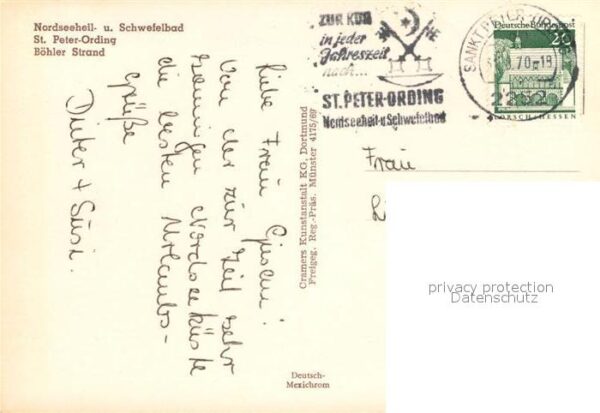 Nordseeheil- u. Schwefelbad
St. Peter-Ording
Böhler Strand
Liebe Frau
Von der zur Zeit sehr
sonnigen Nordseeküste
die besten Urlaubs-
grüße
Dieter + Susi.
Cramers Kunstanstalt KG, Dortmund
Freigeg. Reg.-Präs. Münster 4175/69
Deutsch-
Mexichrom
ZUR KUR
in jeder
Jahreszeit
nach...
ST. PETER-ORDING
Nordseeheil-u.Schwefelbad
SANKT PETER-ORDING
70-19
2252
Deutsche Bundespost
20
LORSCH/HESSEN
Frau
privacy protection
Datenschutz